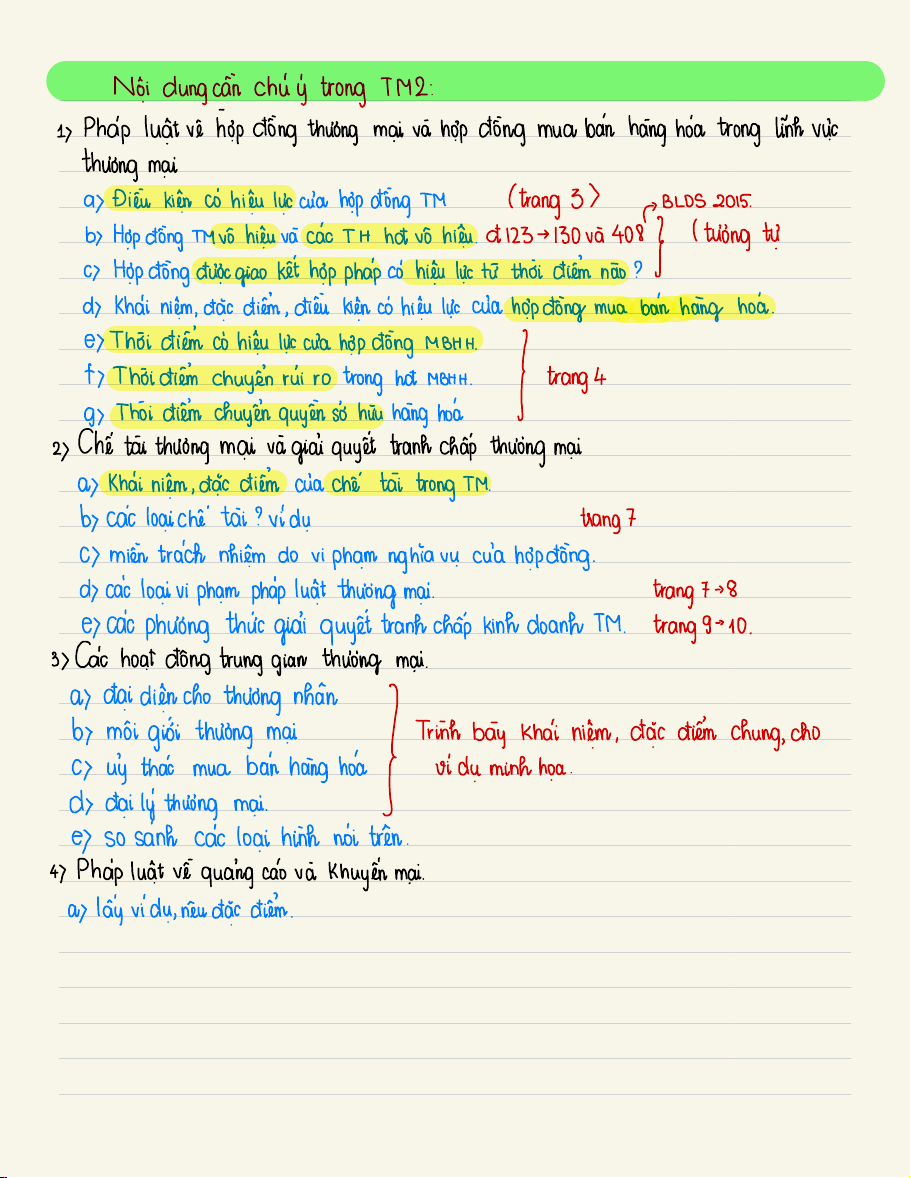 Nội dung cần chú ý trong TM2:
1) Pháp luật về hợp đồng thương mại và hợp đồng mua bán hàng hóa trong lĩnh vực
thương mại
a) Điều kiện có hiệu lực của hợp đồng TM (trang 3)
BLDS 2015.
b) Hợp đồng TM vô hiệu và các TH hđt vô hiệu. đ 123 → 130 và 408 (tương tự
c) Hợp đồng được giao kết hợp pháp có hiệu lực từ thời điểm nào?
d) Khái niệm, đặc điểm, điều kiện có hiệu lực của hợp đồng mua bán hàng hoá.
e) Thời điểm có hiệu lực của hợp đồng MBHH.
f) Thời điểm chuyển rủi ro trong hđt MBHH. trang 4
g) Thời điểm chuyển quyền sở hữu hàng hoá
2) Chế tài thương mại và giải quyết tranh chấp thương mại
a) Khái niệm, đặc điểm của chế tài trong TM.
b) các loại chế tài? ví dụ trang 7
c) miễn trách nhiệm do vi phạm nghĩa vụ của hợp đồng.
d) các loại vi phạm pháp luật thương mại. trang 7 → 8
e) các phương thức giải quyết tranh chấp kinh doanh TM. trang 9 → 10.
3) Các hoạt động trung gian thương mại.
a) đại diện cho thương nhân
b) môi giới thương mại Trình bày khái niệm, đặc điểm chung, cho
c) uỷ thác mua bán hàng hoá ví dụ minh họa.
d) đại lý thương mại.
e) so sánh các loại hình nói trên.
4) Pháp luật về quảng cáo và khuyến mại.
a) lấy ví dụ, nêu đặc điểm.